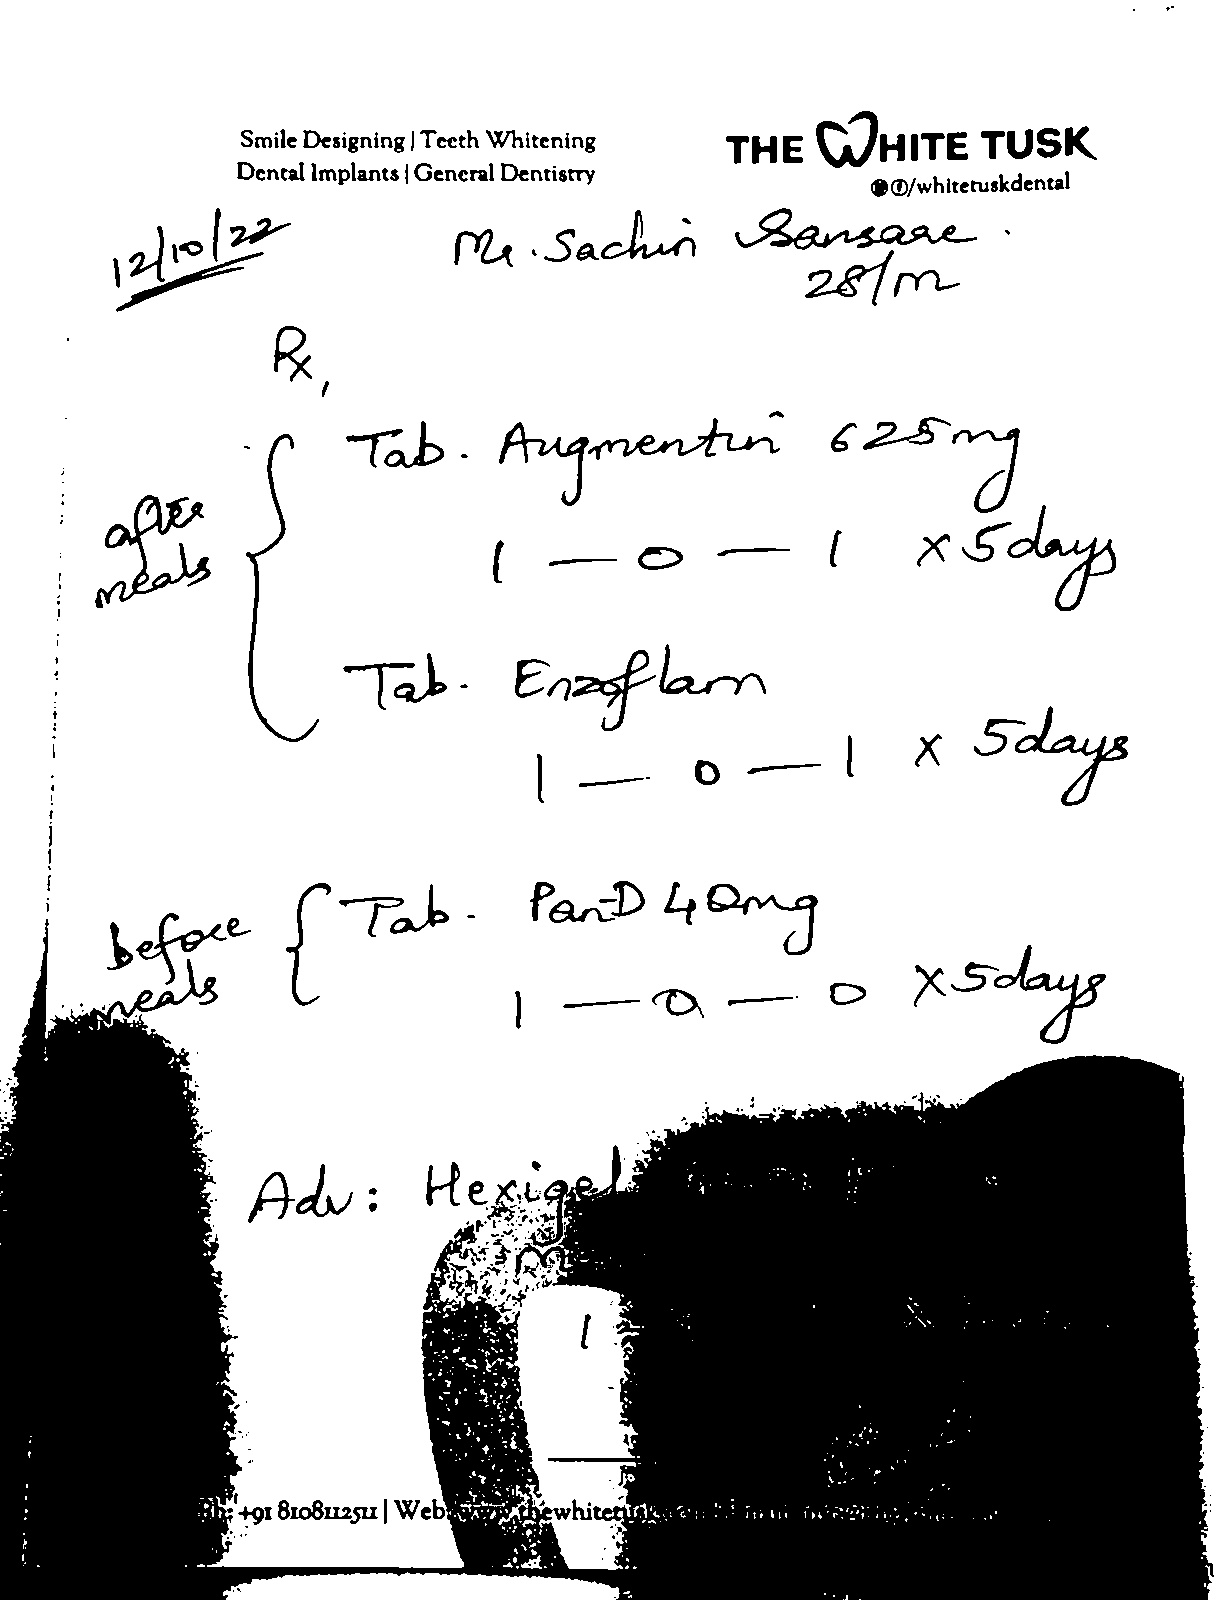 Smile Designing | Teeth Whitening
Dental Implants | General Dentistry
THE WHITE TUSK
/whitetuskdental
12/10/22
Mr. Sachin Sansare.
28/m
Rx,
after
meals
Tab. Augmentin 625mg
1 — 0 — 1 x 5 days
Tab. Enzoflam
1 — 0 — 1 x 5 days
before
meals
Tab. Pan-D 40mg
1 — 0 — 0 x 5 days
Adv: Hexigel
1
+91 8108112511 | Web: www.thewhitetusk